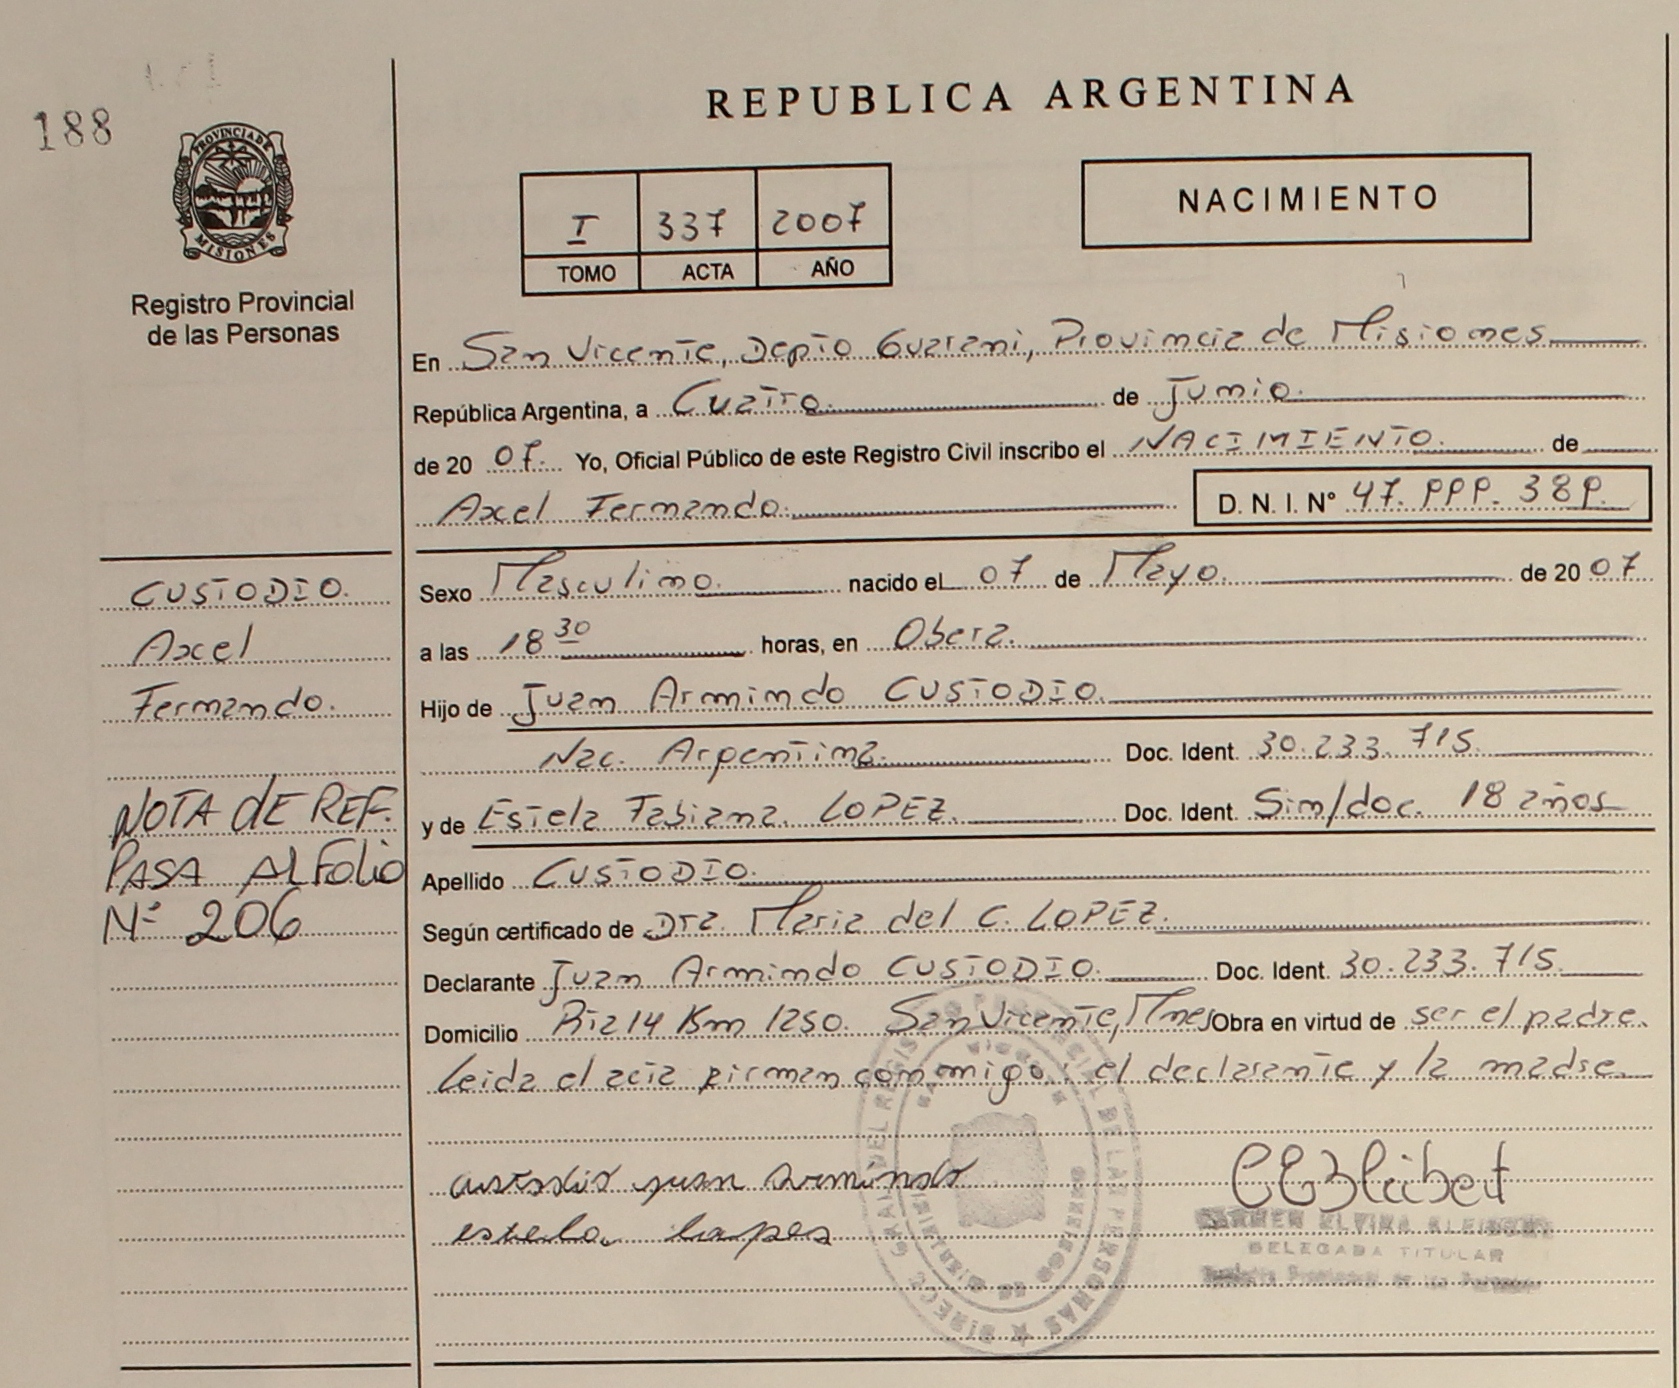 188
REPUBLICA ARGENTINA
PROVINCIA DE MISIONES
Registro Provincial
de las Personas
I 337 2007
TOMO ACTA AÑO
NACIMIENTO
En San Vicente, Depto Guarani, Provincia de Misiones
República Argentina, a Cuatro de Junio.
de 20 07. Yo, Oficial Público de este Registro Civil inscribo el NACIMIENTO. de
Axel Fernando. D. N. I. N° 47.999.389.
CUSTODIO.
Axel
Fernando.
NOTA DE REF.
PASA AL FOLIO
Nº 206
Sexo Masculino. nacido el 07 de Mayo. de 20 07
a las 18 30 horas, en Obera.
Hijo de Juan Armindo CUSTODIO.
Nac. Argentina. Doc. Ident. 30.233.715.
y de Estela Fabiana. LOPEZ. Doc. Ident. Sin/doc. 18 años
Apellido CUSTODIO.
Según certificado de Dra. Maria del C. LOPEZ.
Declarante Juan Armindo CUSTODIO. Doc. Ident. 30.233.715.
Domicilio Rta 14 Km 1250. San Vicente, Mnes Obra en virtud de ser el padre.
Leida el acta firman conmigo: el declarante y la madre.
custodio juan Armindo
estela lopes
DELEGADA TITULAR